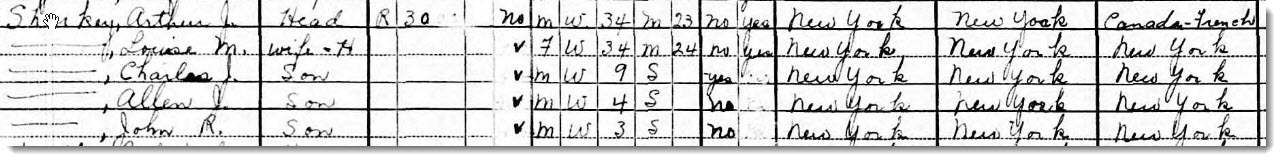 Sharkey, Arthur J. Head R 30 No M W 34 M 23 no yes New York New York Canada-French
——, Louise M. wife-H v F W 34 M 24 no yes New York New York New York
——, Charles J. Son v M W 9 S yes New York New York New York
——, Allen J. Son v M W 4 S no New York New York New York
——, John R. Son v M W 3 S no New York New York New York